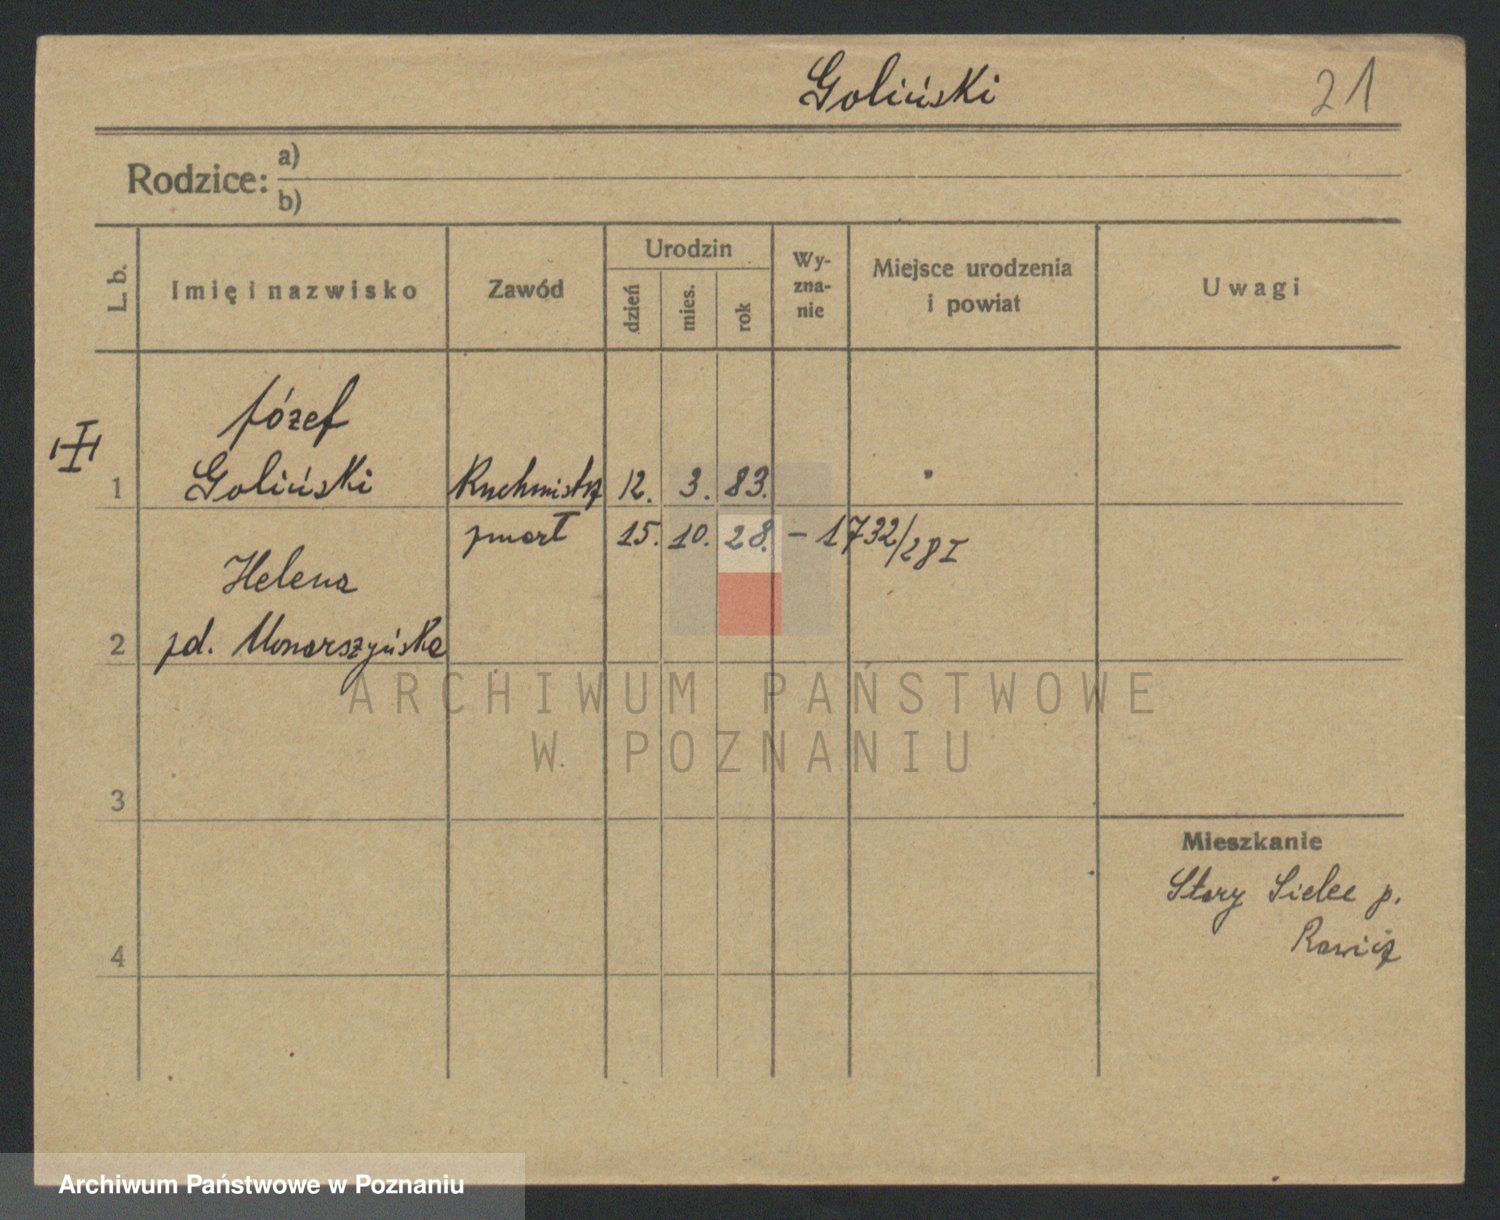 Goliński 21
Rodzice: a)
b)
L. b. Imię i nazwisko Zawód Urodzin dzień mies. rok Wy-zna-nie Miejsce urodzenia i powiat Uwagi
Józef
1 Goliński Ruchmistrz 12. 3. 83.
zmarł 15. 10. 28. – 1732/28 I
Helena
2 zd. Monarszyńska
ARCHIWUM PAŃSTWOWE
W POZNANIU
3
Mieszkanie
Stary Sielec p.
4 Rawicz
Archiwum Państwowe w Poznaniu